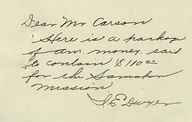 Dear Mr Carson
Here is a package
of Am. money, said
to contain $110 00
for the Samokov
Mission